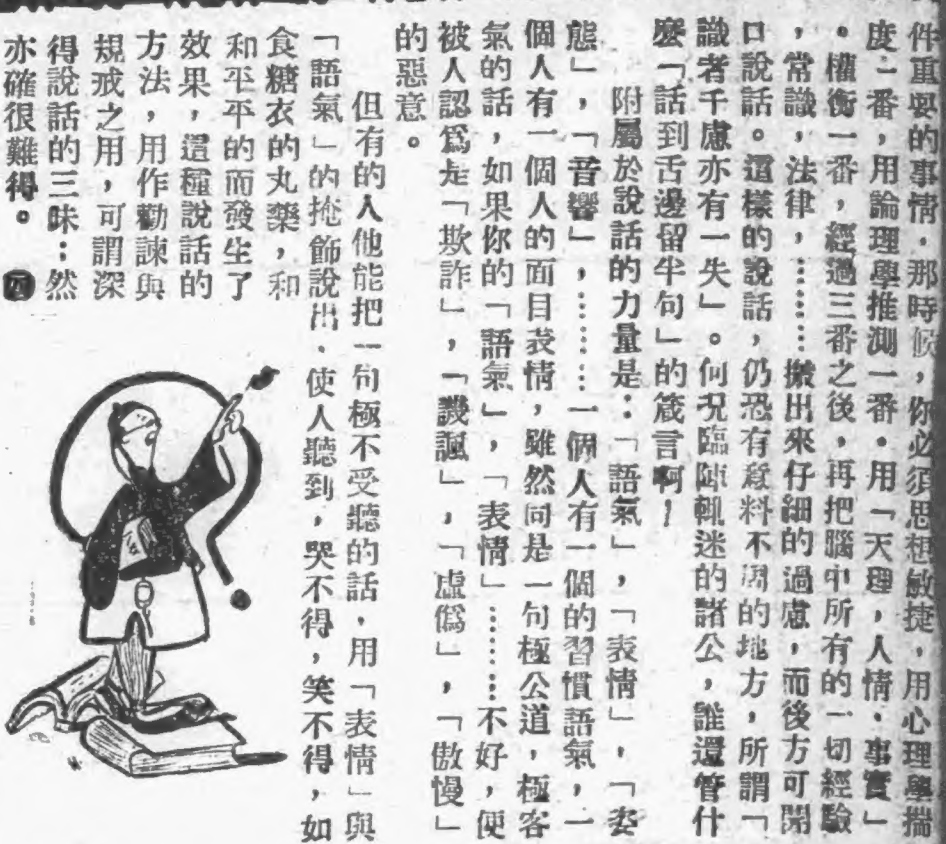 件重要的事情，那時候，你必須思想敏捷，用心理學揣
度一番，用論理學推測一番。用「天理，人情，事實」
。權衡一番，經過三番之後，再把腦中所有的一切經驗
，常識，法律，………搬出來仔細的過慮，而後方可開
口說話。這樣的說話，仍恐有意料不周的地方，所謂「
識者千慮亦有一失」。何况臨陣輒迷的諸公，誰還管什
麼「話到舌邊留半句」的箴言啊！
附屬於說話的力量是：「語氣」，「表情」，「姿
態」，「音響」，………一個人有一個的習慣語氣，一
個人有一個人的面目表情，雖然同是一句極公道，極客
氣的話，如果你的「語氣」，「表情」………不好，便
被人認爲是「欺詐」，「譏諷」，「虛僞」，「傲慢」
的惡意。
但有的人他能把一句極不受聽的話，用「表情」與
「語氣」的掩飾說出，使人聽到，哭不得，笑不得，如
食糖衣的丸藥，和
和平平的而發生了
效果，這種說話的
方法，用作勸諫與
規戒之用，可謂深
得說話的三昧；然
亦確很難得。